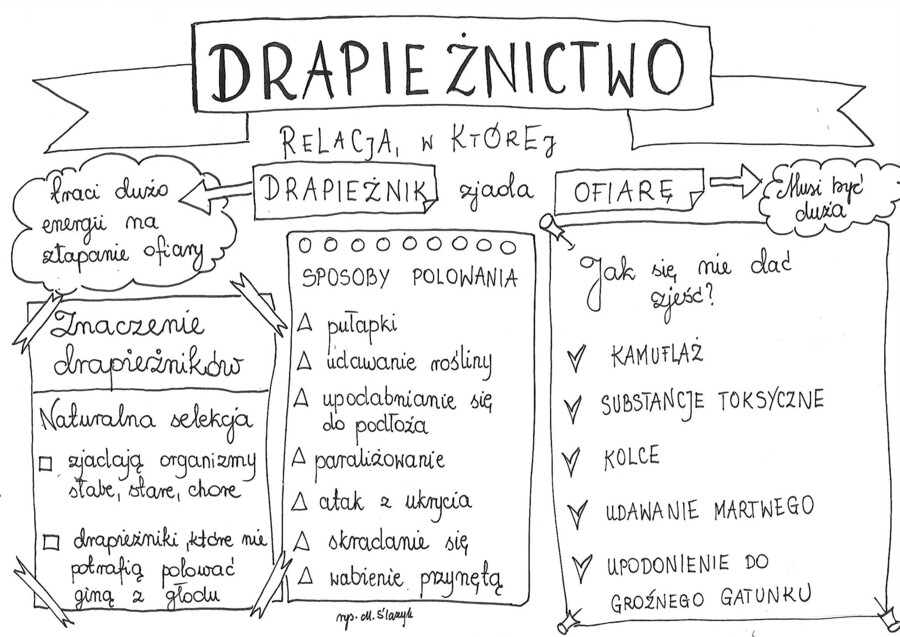 DRAPIEŻNICTWO
RELACJA, W KTÓREJ
DRAPIEŻNIK zjada OFIARĘ
traci dużo
energii na
złapanie ofiary
Musi być
duża
Znaczenie
drapieżników
Naturalna selekcja
zjadają organizmy
słabe, stare, chore
drapieżniki, które nie
potrafią polować
giną z głodu
SPOSOBY POLOWANIA
pułapki
udawanie rośliny
upodabnianie się
do podłoża
paraliżowanie
atak z ukrycia
skradanie się
wabienie przynętą
Jak się nie dać
zjeść?
KAMUFLAŻ
SUBSTANCJE TOKSYCZNE
KOLCE
UDAWANIE MARTWEGO
UPODONIENIE DO
GROŹNEGO GATUNKU
rys. M. Ślazyk